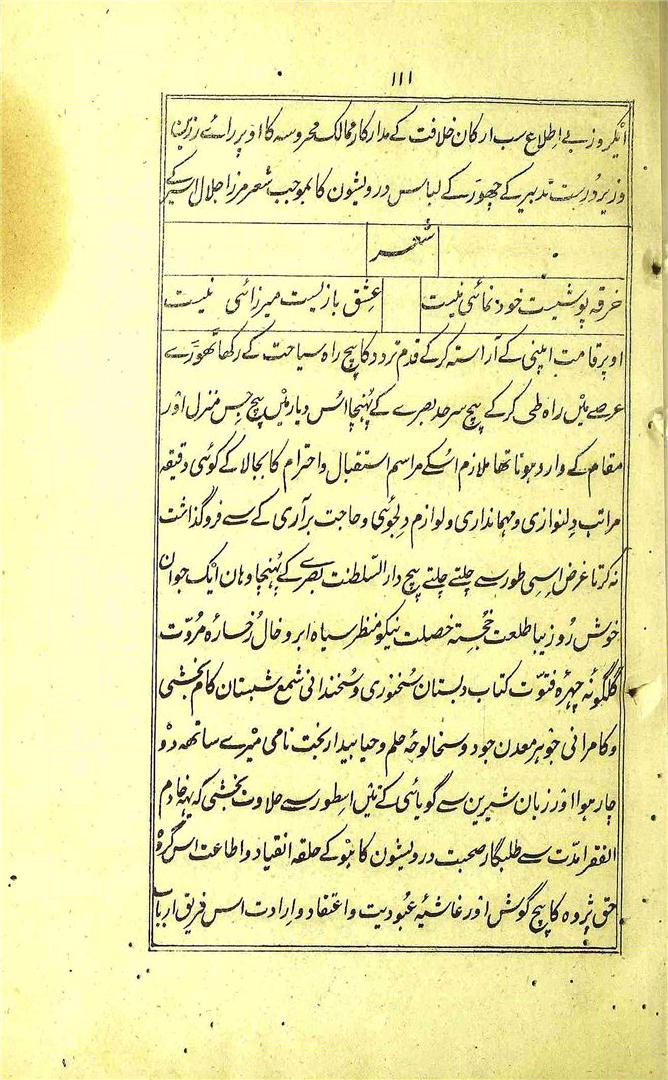 ۱۱۱
ایکروز بے اطلاع سب ارکان خلافت کے مدار کار ممالک محروسہ کا اوپر راے رزین
وزیر درست تدبیر کے چھوڑ کے لباس درویشون کا بموجب شعر مرزا جلال اسیر کے
شعر
خرقہ پوشیست خود نمائی نیست عشق بازیست میرزائی نیست
اوپر قامت اپنی کے آراستہ کر کے قدم تردد کا بیچ راہ سیاحت کے رکھا تھوڑے
عرصے مین راہ طی کر کے بیچ سرحد بصرے کے پہنچا اس دیار مین بیچ جس منزل اور
مقام کے وارد ہوتا تھا ملازم اسکے مراسم استقبال و احترام کا بجا لا کے کوئی دقیقہ
مراتب دلنوازی و مہمانداری و لوازم دلجوئی و حاجت برآری کے سے فروگذاشت
نہ کرتا غرض اسی طور سے چلتے چلتے بیچ دار السلطنت بصرے کے پہنچا وہان ایک جوان
خوش رو زیبا طلعت خجستہ خصلت نیکو منظر سیاہ ابرو خال رخسارہ مروت
گلگونہ چہرہ فتوت کتاب دبستان سخنوری و سخندانی شمع شبستان کام بخشی
و کامرانی جوہر معدن جود و سخا لوحہ حلم و حیا بیدار بخت نامی میرے ساتھ دو
چار ہوا اور زبان شیرین سے گویائی کے تئین اسطور سے حلاوت بخشی کہ یہہ خادم
الفقرا مدت سے طلبگار صحبت درویشون کا ہو کے حلقہ انقیاد و اطاعت اس گروہ
حق پژدہ کا بیچ گوش اور غاشیہ عبودیت و اعتقاد و ارادت اس فریق ارباب